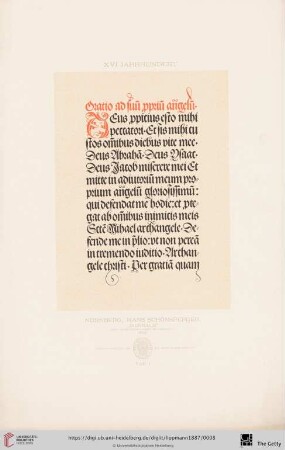 XVI. JAHRHUNDERT.
Oratio ad suũ ꝓpriũ angelũ.
DEus ꝓpitius esto mihi
peccatori. Et sis mihi cu
stos omnibus diebus vite mee.
Deus Abrahã. Deus Ysaac.
Deus Jacob miserere mei Et
mitte in adiutoriũ meum pro
prium angelũ gloriosissimũ:
qui defendat me hodie: et ꝓte
gat ab omnibus inimicis meis
Sctẽ Mihael archangele. De
fende me in p̃lio: vt non pereã
in tremendo iuditio. Archan
gele christi. Per gratiã quam
HANS SCHÖNSPERGER
https://digi.ub.uni-heidelberg.de/diglit/lippmann1887/0098
© Universitätsbibliothek Heidelberg
UNIVERSITÄTS-
BIBLIOTHEK
HEIDELBERG
The Getty